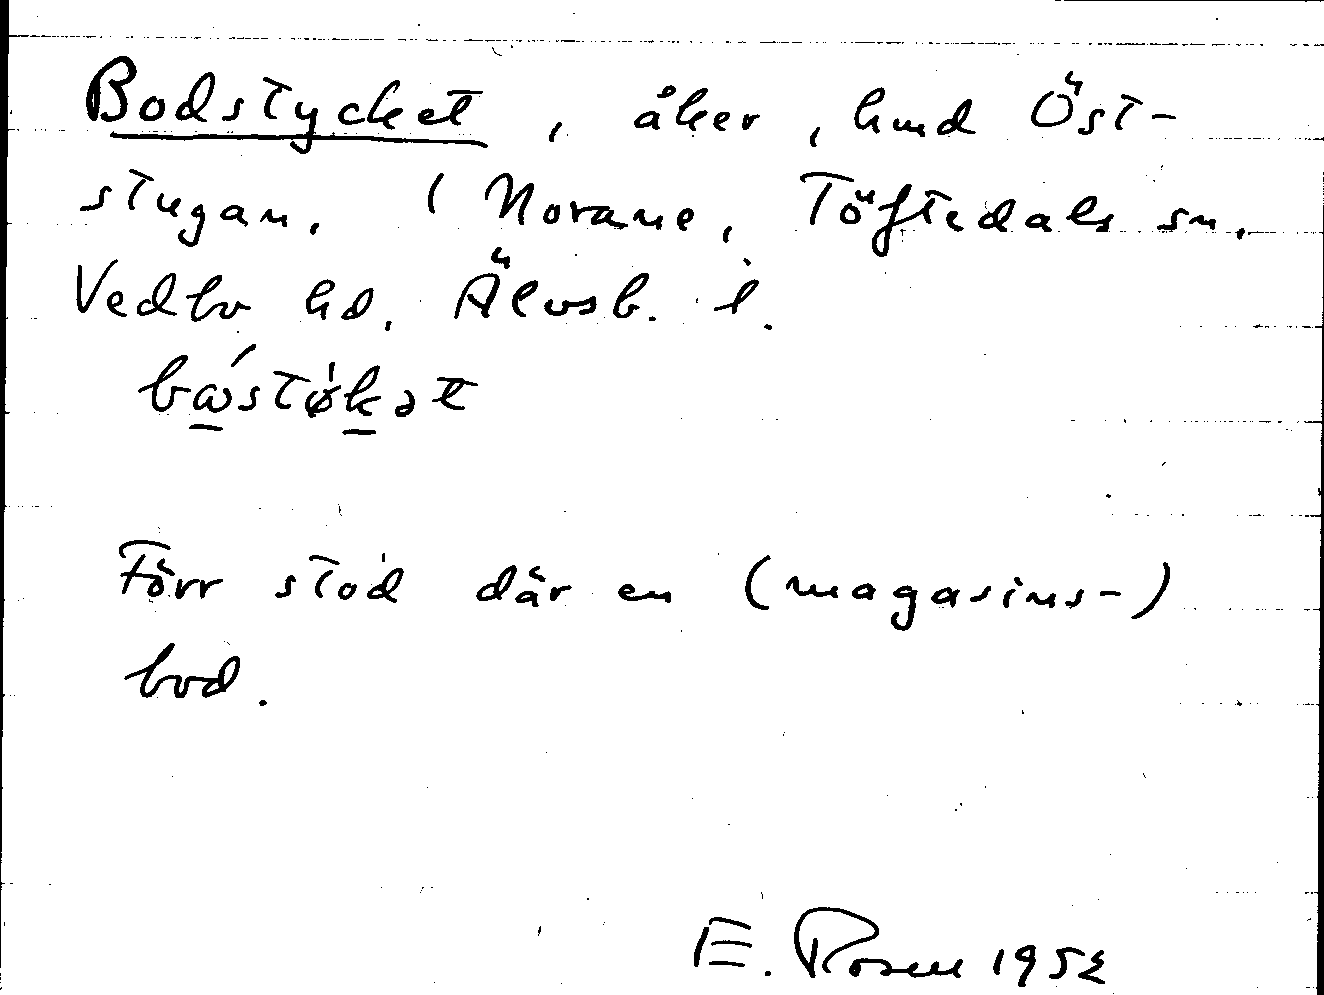 Bodstycket, åker, hmd Öst-
stugan, i Norane, Töftedals sn,
Vedbo hd, Älvsb. l.
Förr stod där en (magasins-)
bod.
E. Rosen 1952